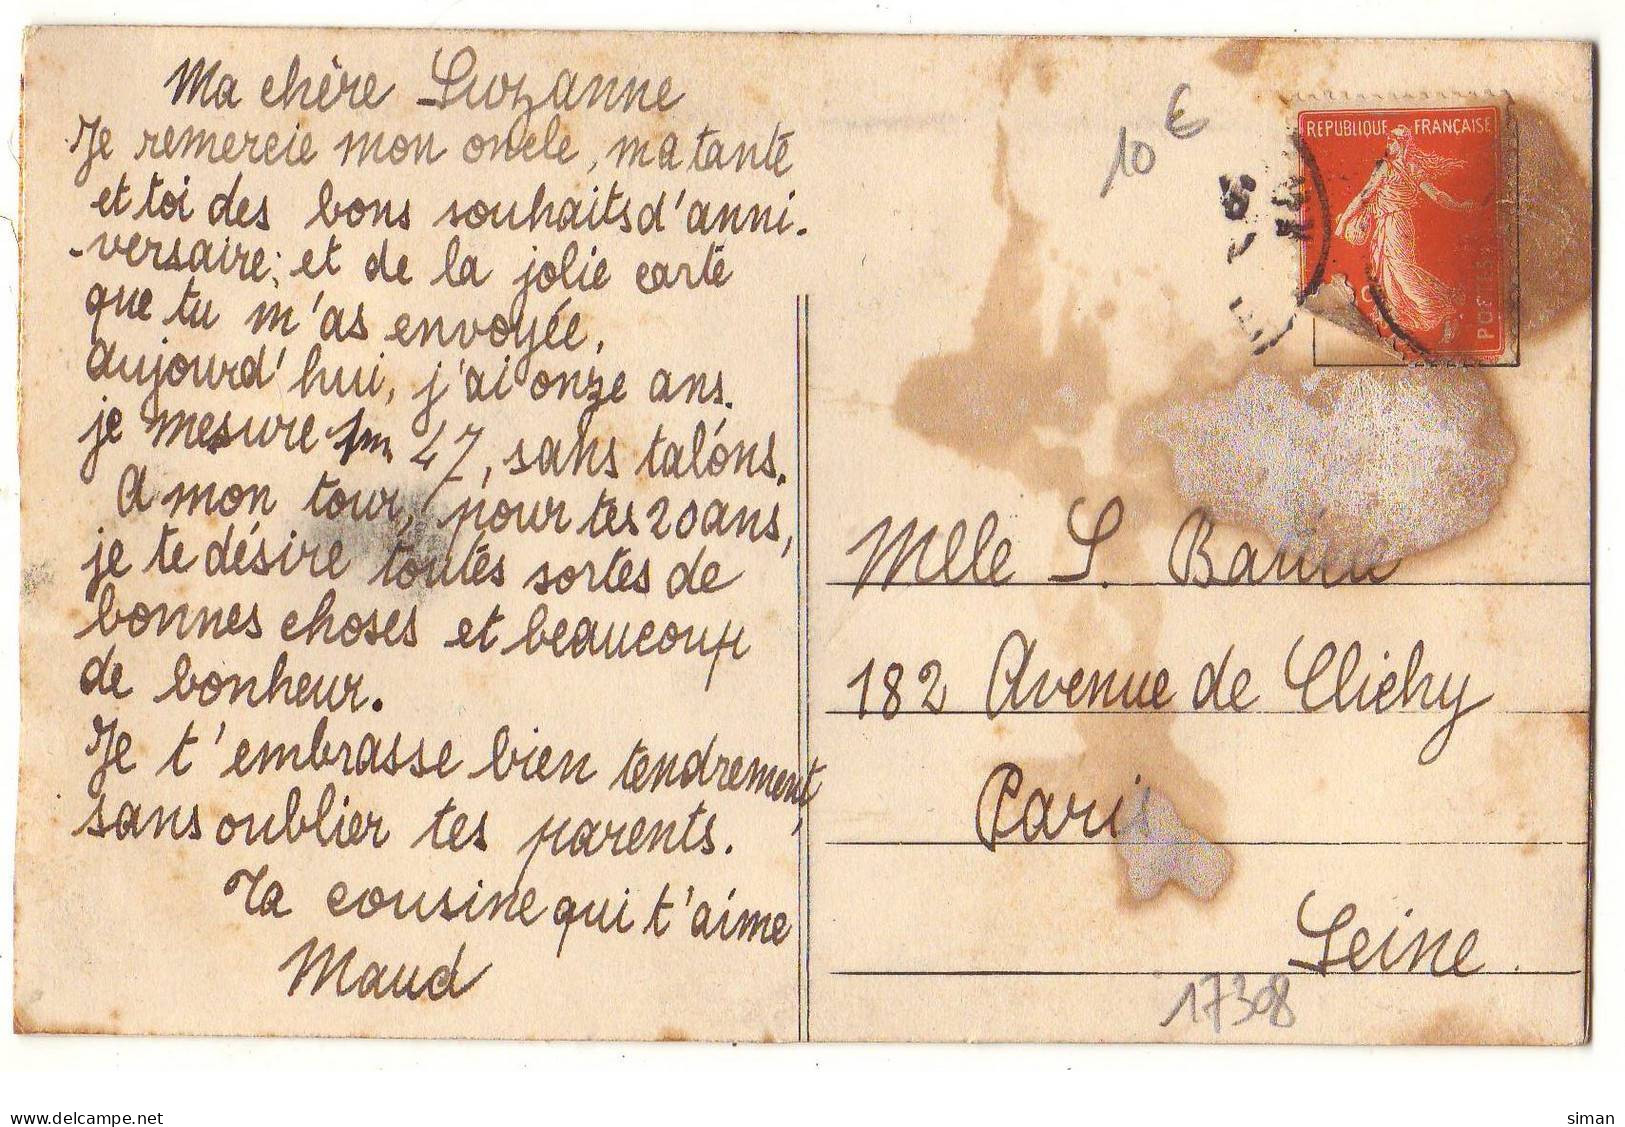 Ma chère Suzanne
Je remercie mon oncle, ma tante
et toi des bons souhaits d'anni-
-versaire; et de la jolie carte
que tu m'as envoyée.
aujourd'hui, j'ai onze ans.
je mesure 1m 47, sans talons.
A mon tour, pour tes 20 ans,
je te désire toutes sortes de
bonnes choses et beaucoup
de bonheur.
Je t'embrasse bien tendrement,
sans oublier tes parents.
Ta cousine qui t'aime
Maud
10 €
REPUBLIQUE FRANÇAISE
Mlle S.
182 Avenue de Clichy
Paris
Seine.
17308
www.delcampe.net
siman